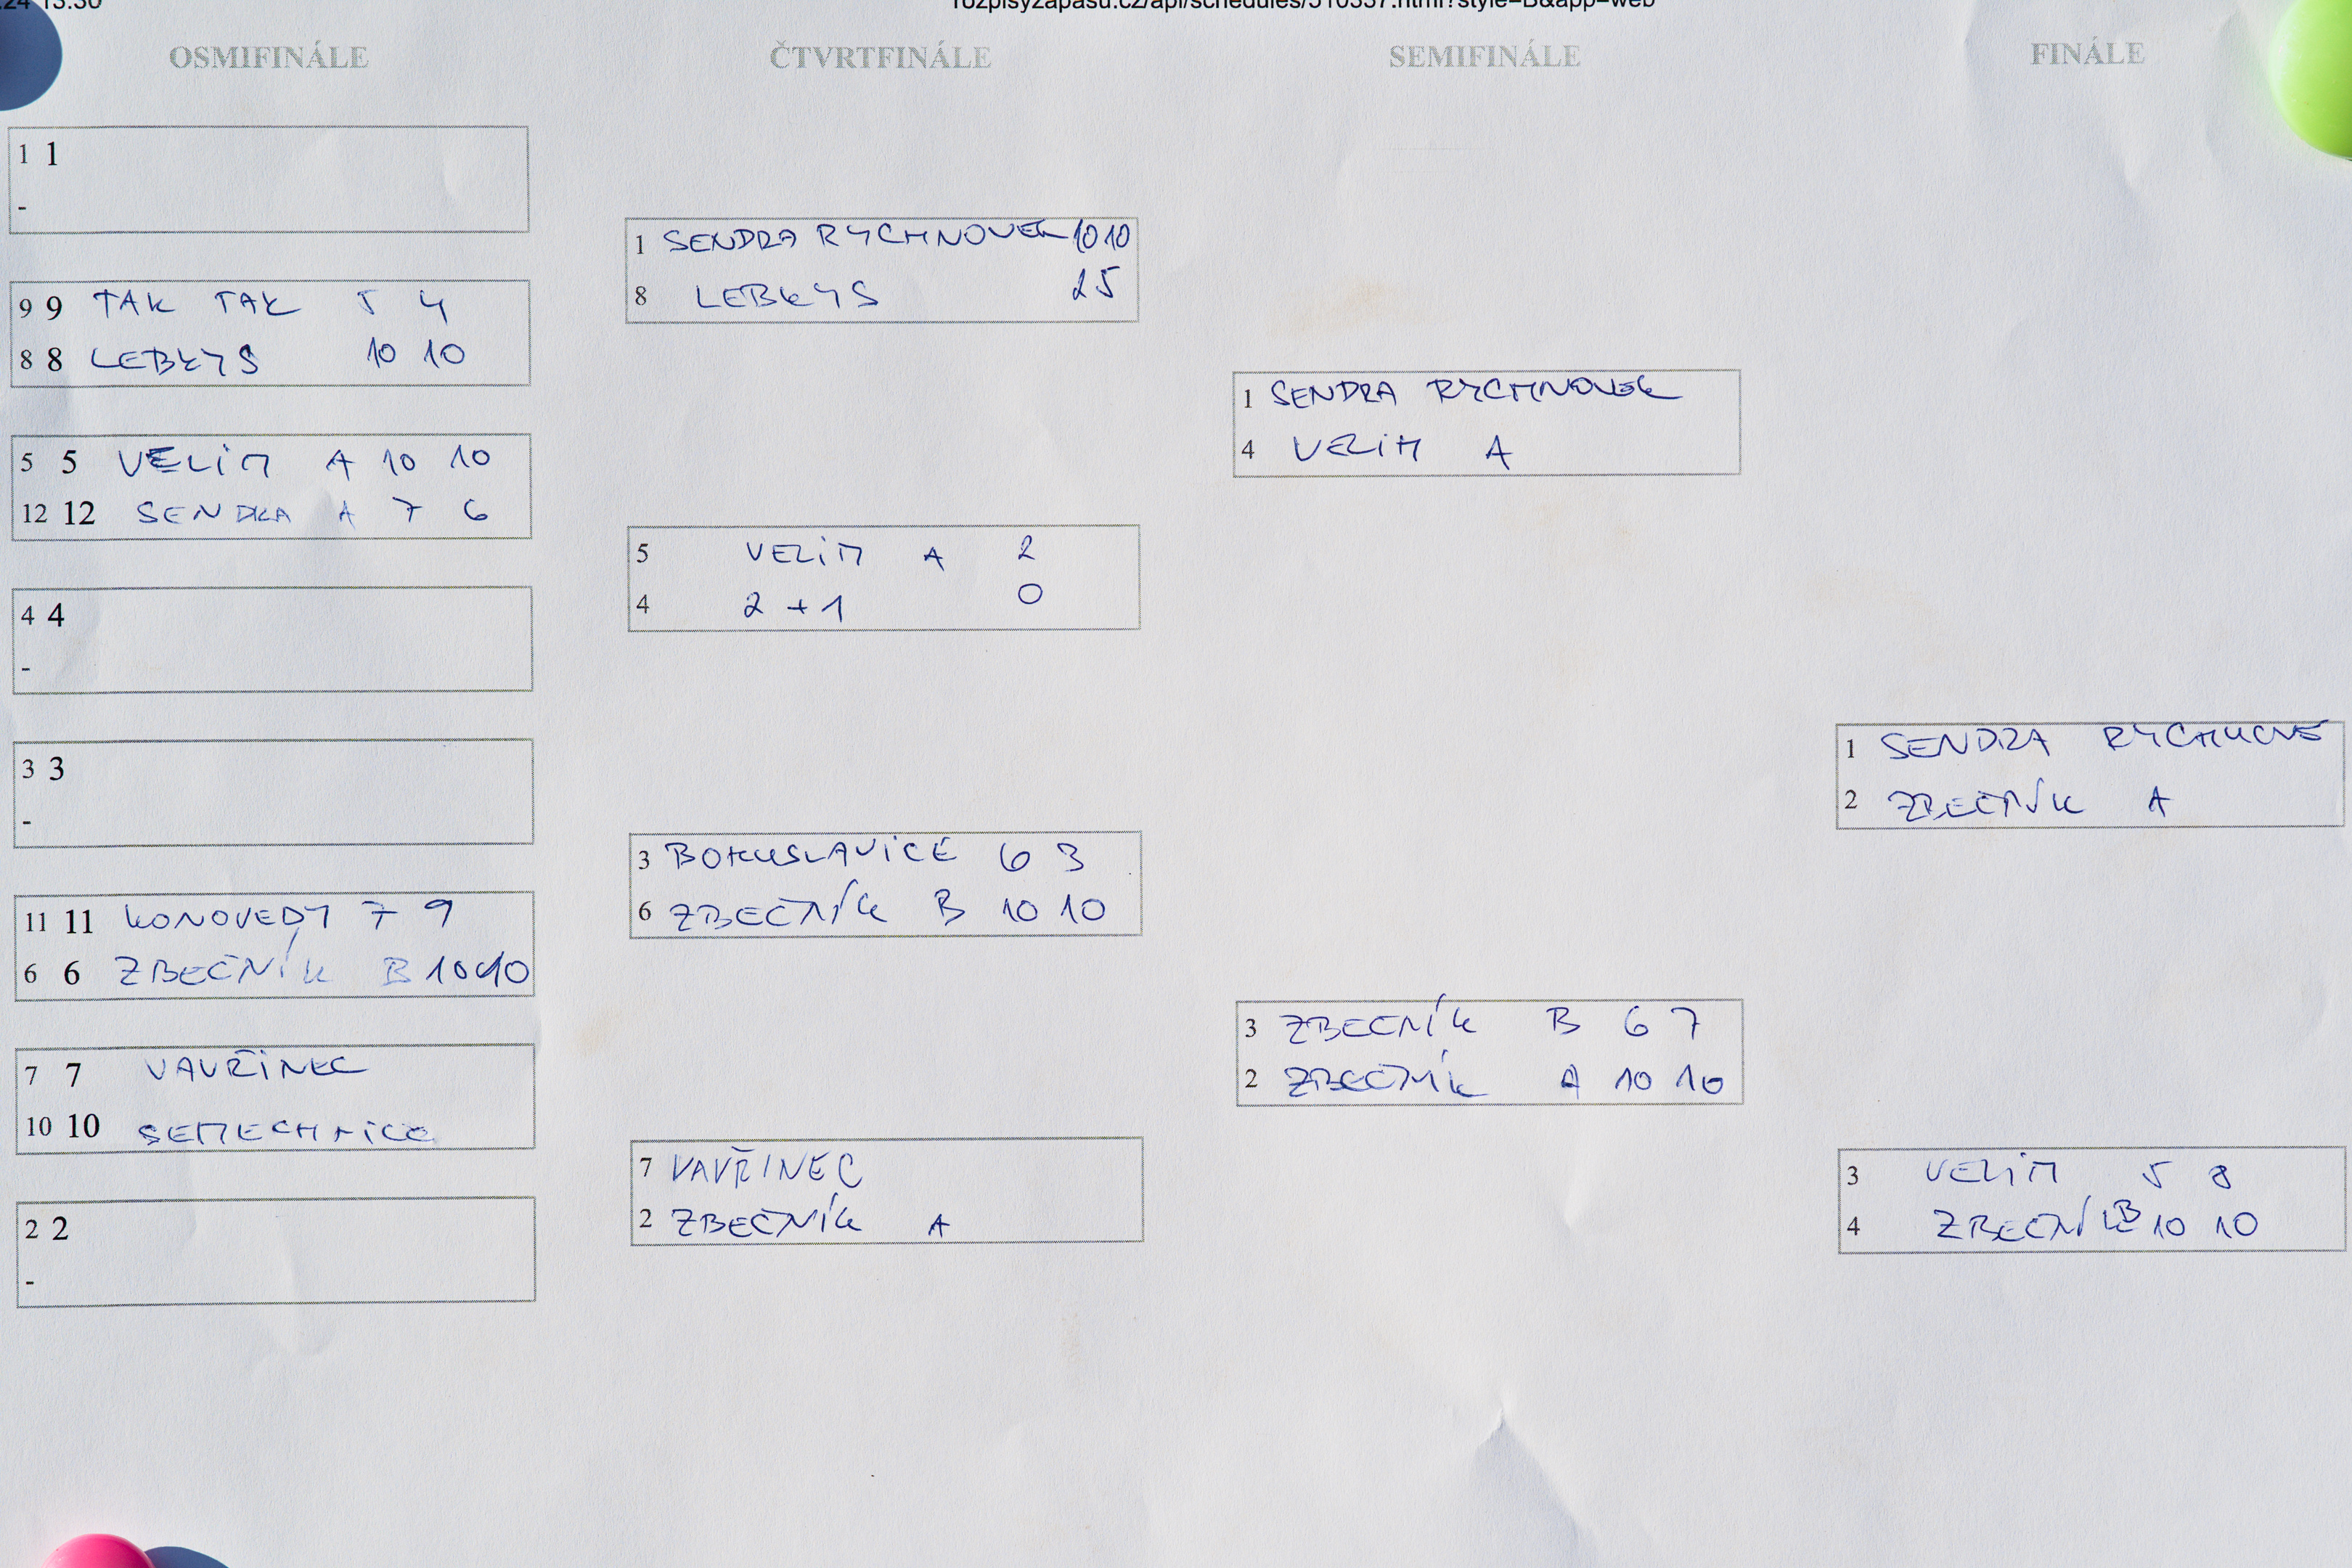 rozpisyzapasu.cz/api/schedules/510337.html?style=B&app=web
OSMIFINÁLE
1 1
-
9 9 TAK TAK 5 4
8 8 LEBKYS 10 10
5 5 VELIM A 10 10
12 12 SENDRA A 7 6
4 4
-
3 3
-
11 11 KONOVEDY 7 9
6 6 ZBEČNÍK B 10 10
7 7 VAVŘINEC
10 10 SEMECHNICE
2 2
-
ČTVRTFINÁLE
1 SENDRA RYCHNOVEK 10 10
8 LEBKYS 2 5
5 VELIM A 2
4 2+1 0
3 BOHUSLAVICE 6 3
6 ZBEČNÍK B 10 10
7 VAVŘINEC
2 ZBEČNÍK A
SEMIFINÁLE
1 SENDRA RYCHNOVEK
4 VELIM A
3 ZBEČNÍK B 6 7
2 ZBEČNÍK A 10 10
FINÁLE
1 SENDRA RYCHNOVE
2 ZBEČNÍK A
3 VELIM 5 8
4 ZBEČNÍK B 10 10